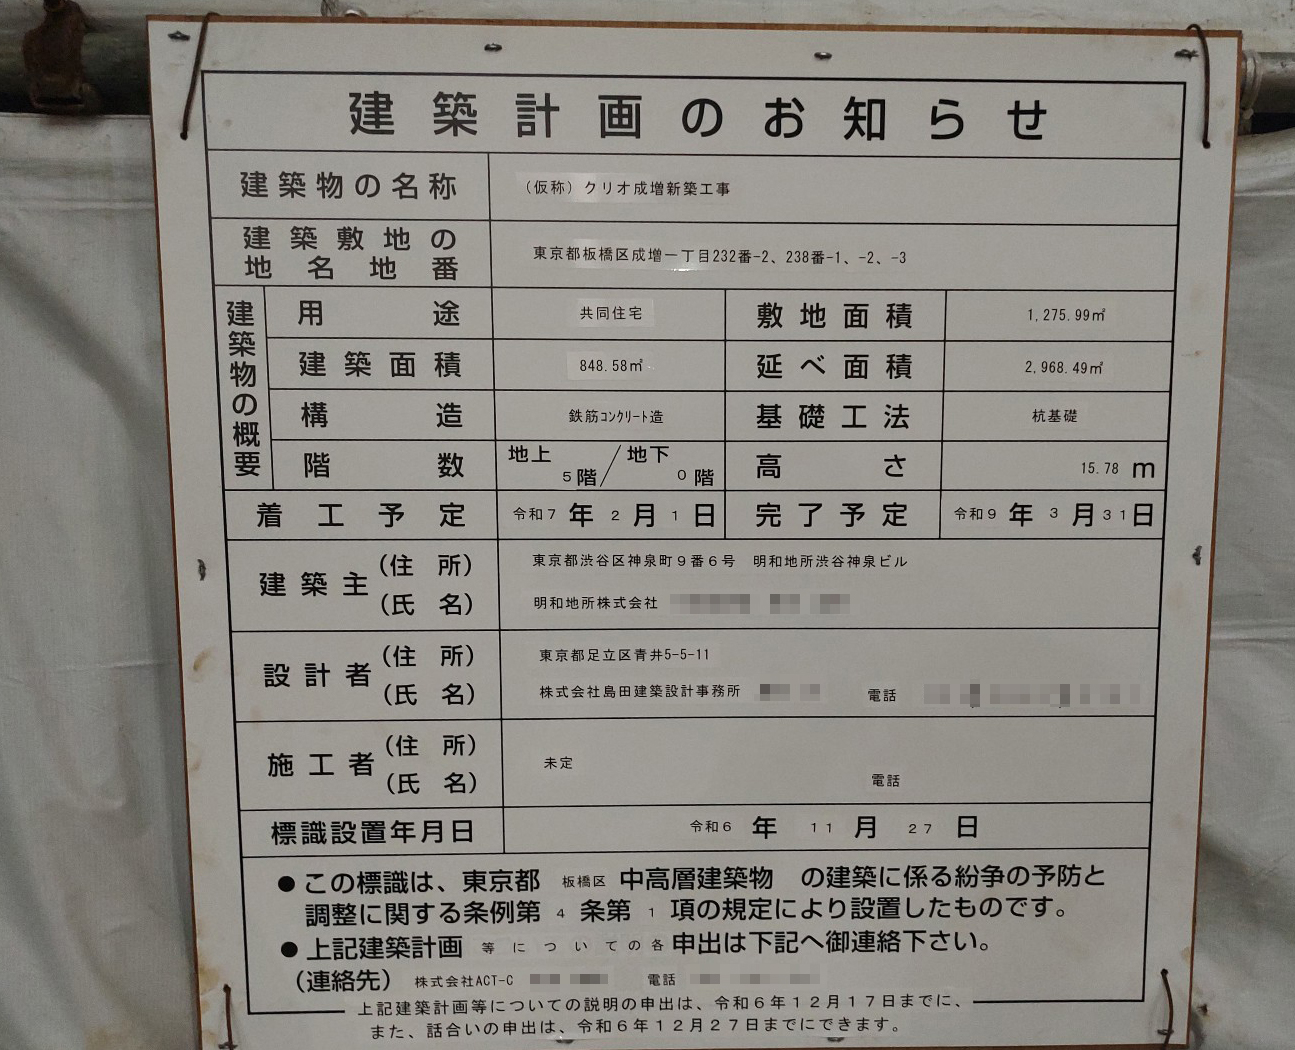 建築計画のお知らせ
建築物の名称 （仮称）クリオ成増新築工事
建築敷地の地名地番 東京都板橋区成増一丁目232番-2、238番-1、-2、-3
建築物の概要
用途 共同住宅 敷地面積 1,275.99㎡
建築面積 848.58㎡ 延べ面積 2,968.49㎡
構造 鉄筋ｺﾝｸﾘｰﾄ造 基礎工法 杭基礎
階数 地上5階／地下0階 高さ 15.78 m
着工予定 令和7年2月1日 完了予定 令和9年3月31日
建築主 （住所） 東京都渋谷区神泉町９番６号 明和地所渋谷神泉ビル
（氏名） 明和地所株式会社
設計者 （住所） 東京都足立区青井5-5-11
（氏名） 株式会社島田建築設計事務所 電話
施工者 （住所） 未定
（氏名） 電話
標識設置年月日 令和6年11月27日
●この標識は、東京都 板橋区 中高層建築物 の建築に係る紛争の予防と
調整に関する条例第4条第1項の規定により設置したものです。
●上記建築計画等についての各申出は下記へ御連絡下さい。
（連絡先） 株式会社ACT-C 電話
上記建築計画等についての説明の申出は、令和６年１２月１７日までに、
また、話合いの申出は、令和６年１２月２７日までにできます。